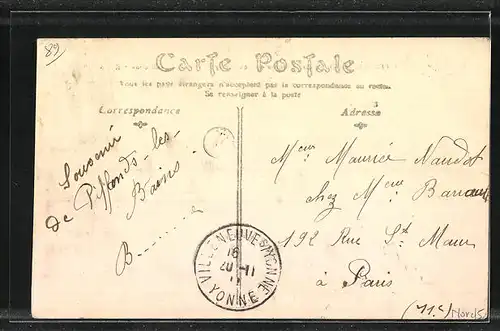 89
Carte Postale
Tous les pays étrangers n'acceptent pas la correspondance au recto.
Se renseigner à la poste
Correspondance
Adresse
Souvenir
de Piffonds-les-
Bains
B
Meur Maurice Naudot
chez Mme
192 Rue St Maur
à Paris
VILLENEUVE S/YONNE
20-11
YONNE
(11e)